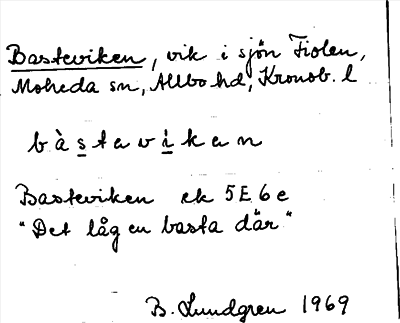 Basteviken, vik i sjön Fiolen,
Moheda sn, Allbo hd, Kronob. l
bàstavikan
Basteviken ek 5E6e
"Det låg en basta där"
B. Lundgren 1969